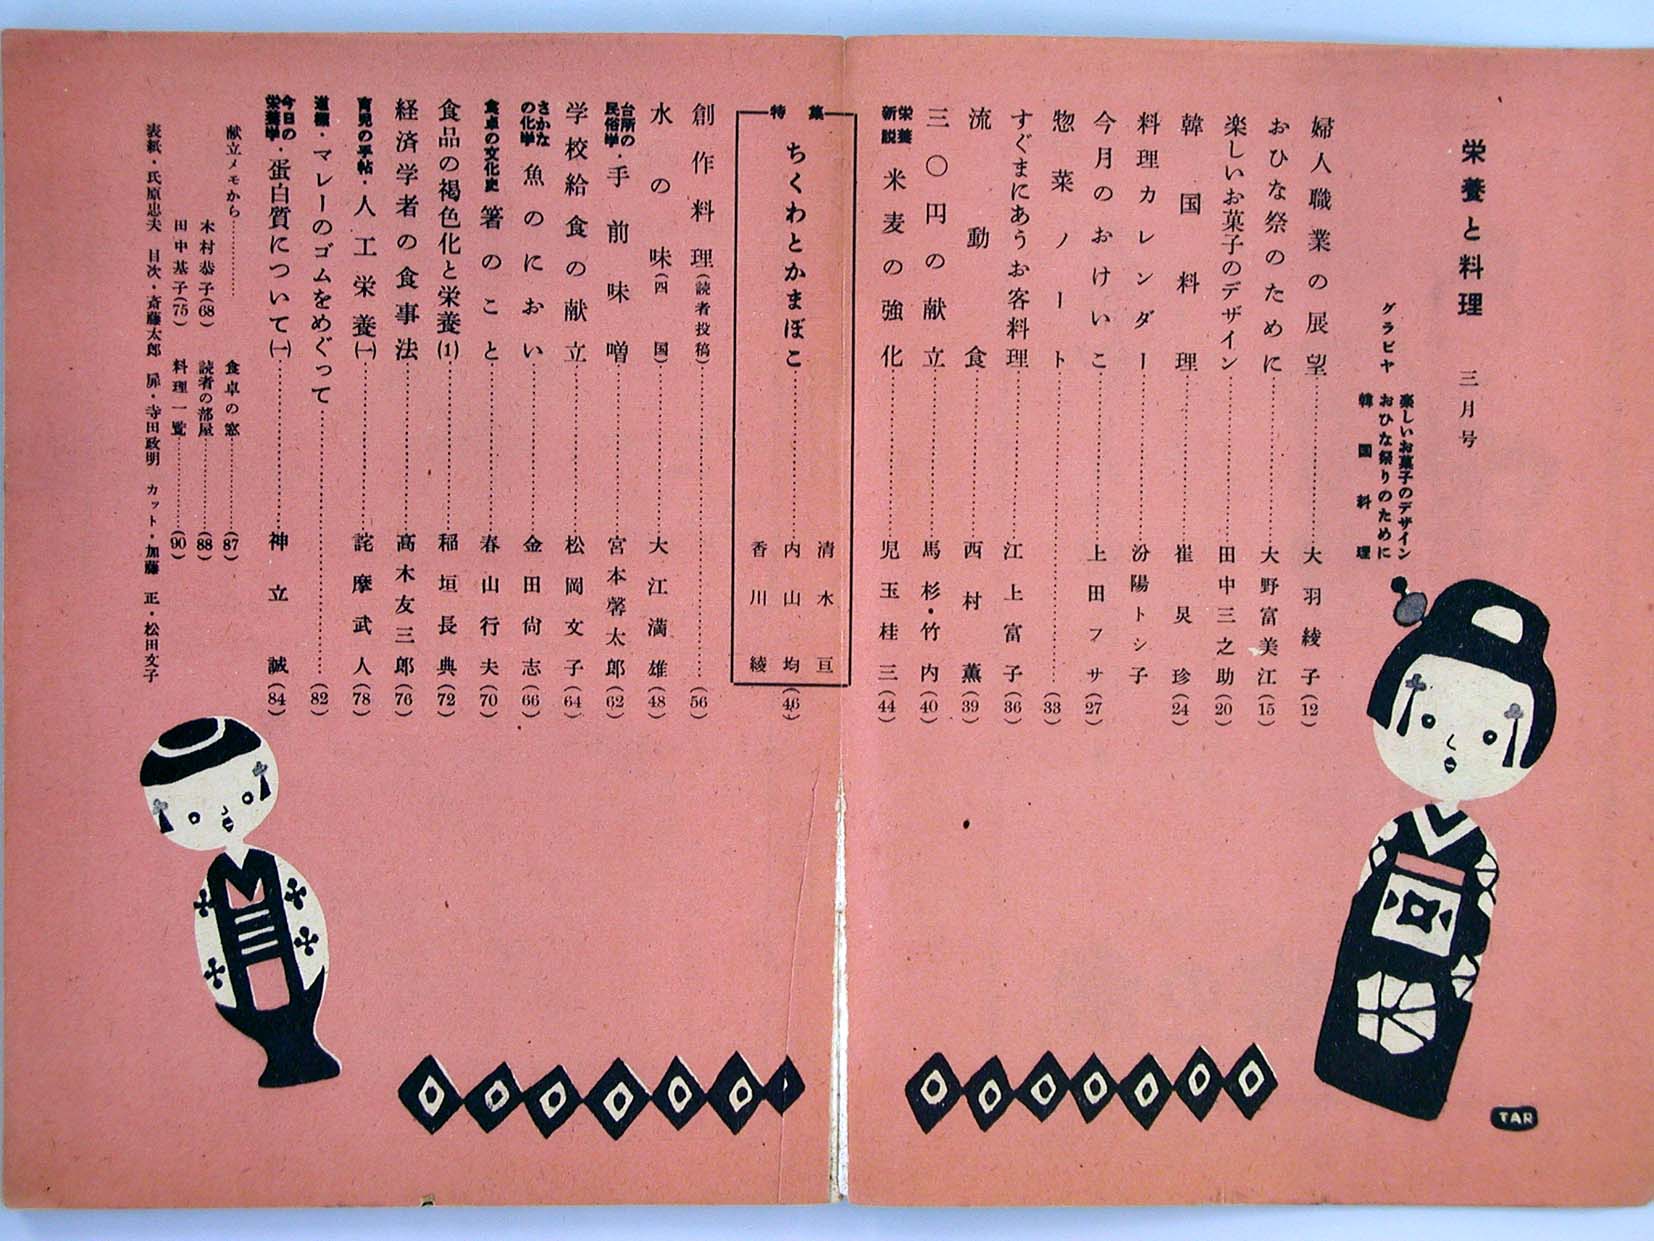 栄養と料理 三月号
グラビヤ
楽しいお菓子のデザイン
おひな祭りのために
韓国料理
婦人職業の展望……大羽綾子(12)
おひな祭のために……大野富美江(15)
楽しいお菓子のデザイン……田中三之助(20)
韓国料理……崔炅珍(24)
料理カレンダー……汾陽トシ子
今月のおけいこ……上田フサ(27)
惣菜ノート……(33)
すぐまにあうお客料理……江上富子(36)
流動食……西村薫(39)
三〇円の献立……馬杉・竹内(40)
栄養新説 米麦の強化……児玉桂三(44)
特集
ちくわとかまぼこ……清水亘 内山均 香川綾(46)
創作料理(読者投稿)……(56)
水の味(四国)……大江満雄(48)
台所の民俗学・手前味噌……宮本馨太郎(62)
学校給食の献立……松岡文子(64)
さかなの化学 魚のにおい……金田尚志(66)
食卓の文化史 箸のこと……春山行夫(70)
食品の褐色化と栄養(1)……稲垣長典(72)
経済学者の食事法……高木友三郎(76)
育児の手帖・人工栄養(一)……詫摩武人(78)
道標・マレーのゴムをめぐって……(82)
今日の栄養学・蛋白質について(一)……神立誠(84)
献立メモから……
木村恭子(68)
田中基子(75)
食卓の窓……(87)
読者の部屋……(88)
料理一覧……(90)
表紙・氏原忠夫 目次・斎藤太郎 扉・寺田政明 カット・加藤正・松田文子
TAR